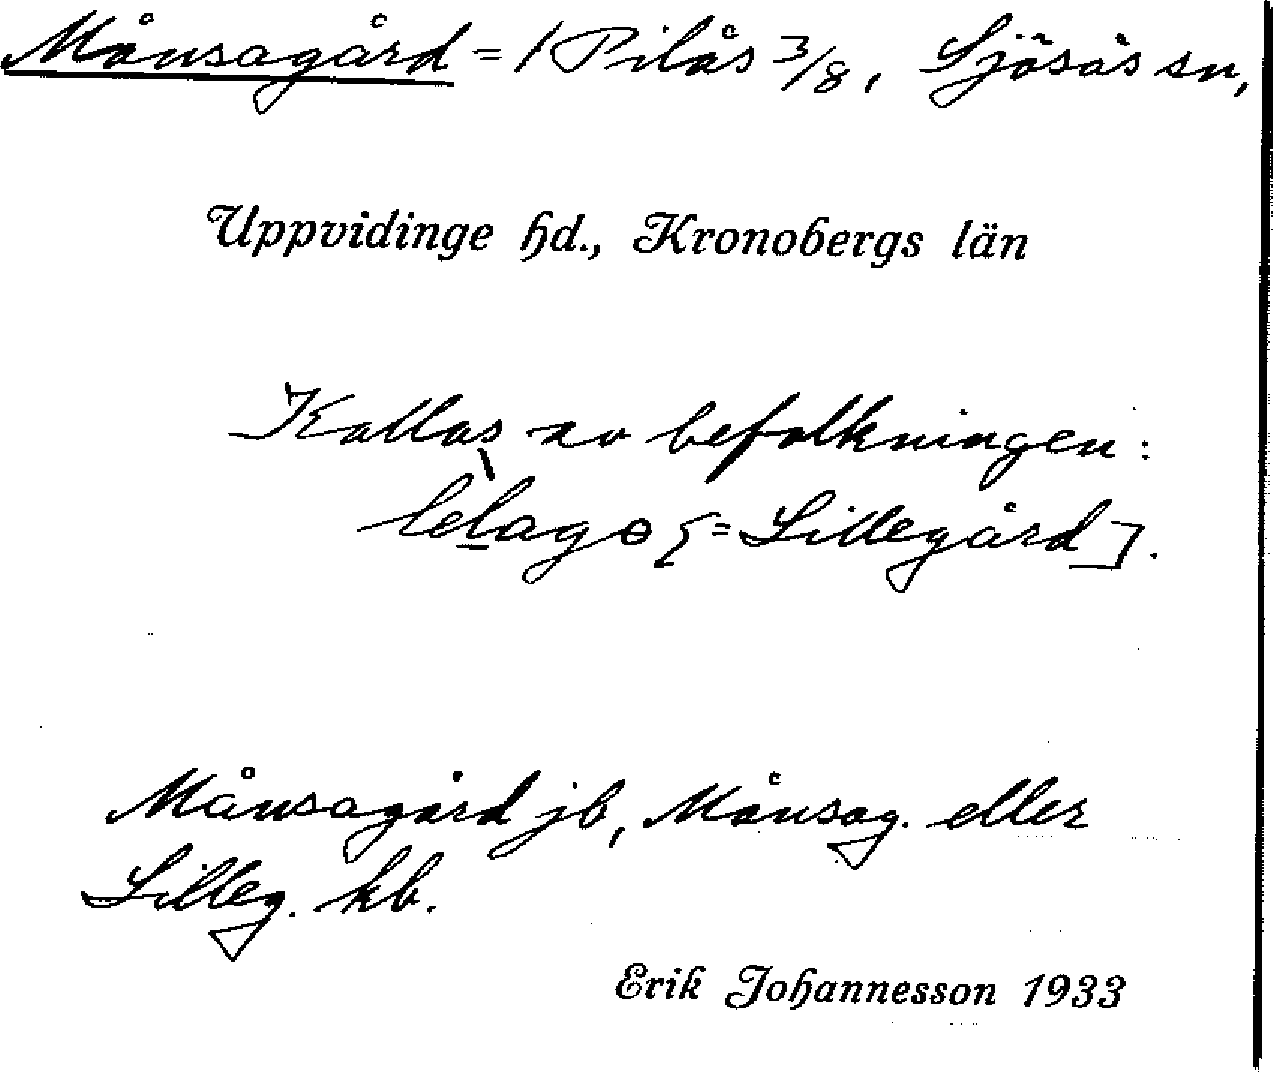 Månsagård = / Pilås 3/8, Sjösås sn,
Uppvidinge hd., Kronobergs län
Kallas av befolkningen:
lèlago [= Lillegård].
Månsagård jb, Månsag. eller
Lilleg. kb.
Erik Johannesson 1933